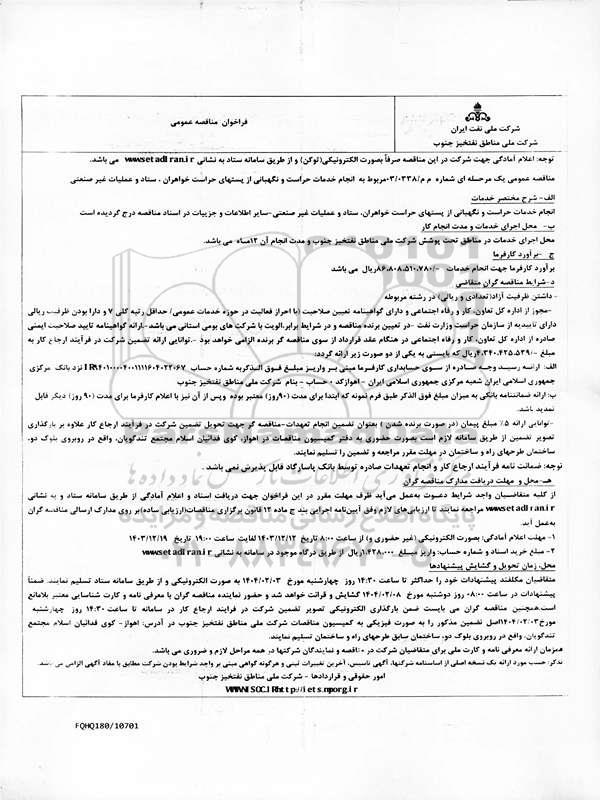 شرکت ملی نفت ایران
شرکت ملی مناطق نفتخیز جنوب
فراخوان مناقصه عمومی
توجه: اعلام آمادگی جهت شرکت در این مناقصه صرفاً بصورت الکترونیکی(توکن) و از طریق سامانه ستاد به نشانی www.setadiran.ir می باشد.
مناقصه عمومی یک مرحله ای شماره م م/۰۳/۰۳۳۸مربوط به انجام خدمات حراست و نگهبانی از پستهای حراست خواهران ، ستاد و عملیات غیر صنعتی
الف- شرح مختصر خدمات
انجام خدمات حراست و نگهبانی از پستهای حراست خواهران، ستاد و عملیات غیر صنعتی-سایر اطلاعات و جزییات در اسناد مناقصه درج گردیده است
ب- محل اجرای خدمات و مدت انجام کار
محل اجرای خدمات در مناطق تحت پوشش شرکت ملی مناطق نفتخیز جنوب و مدت انجام آن ۱۲ماه می باشد.
ج - برآورد کارفرما
برآورد کارفرما جهت انجام خدمات -/۸۶،۸۰۸،۵۱۰،۷۸۰ریال می باشد
د-شرایط مناقصه گران متقاضی
- داشتن ظرفیت آزاد(تعدادی و ریالی) در رشته مربوطه
-مجوز از اداره کل تعاون، کار و رفاه اجتماعی و دارای گواهینامه تعیین صلاحیت (با احراز فعالیت در حوزه خدمات عمومی/ حداقل رتبه کلی ۷ و دارا بودن ظرفیت ریالی
دارای تاییدیه از سازمان حراست وزارت نفت -در تعیین برنده مناقصه و در شرایط برابر،الویت با شرکت های بومی استانی می باشد-.ارائه گواهینامه تایید صلاحیت ایمنی
صادره از اداره کل تعاون، کار و رفاه اجتماعی در هنگام عقد قرارداد از سوی مناقصه گر برنده الزامی خواهد بود .-توانایی ارائه تضمین شرکت در فرآیند ارجاع کار به
مبلغ -/۴،۳۴۰،۴۲۵،۵۳۹ریال که بایستی به یکی از دو صورت زیر ارائه گردد:
الف: ارائه رسید وجه صادره از سوی حسابداری کارفرما مبنی بر واریز مبلغ فوق الذکربه شماره حساب نزد بانک مرکزی
جمهوری اسلامی ایران شعبه مرکزی جمهوری اسلامی ایران - اهوازکد ۰ حساب - بنام شرکت ملی مناطق نفتخیز جنوب
ب: ارائه ضمانتنامه بانکی به میزان مبلغ فوق الذکر طبق فرم نمونه که ابتدا برای مدت (۹۰روز) معتبر بوده و پس از آن نیز با اعلام کارفرما برای مدت (۹۰ روز) دیگر قابل
تمدید باشد.
-توانایی ارائه ۵٪ مبلغ پیمان (در صورت برنده شدن ) بعنوان تضمین انجام تعهدات-مناقصه گر جهت تحویل تضمین شرکت در فرآیند ارجاع کار علاوه بر بارگذاری
تصویر تضمین از طریق سامانه لازم است بصورت حضوری به دفتر کمیسیون مناقصات در اهواز، کوی فدائیان اسلام مجتمع تندگویان، واقع در روبروی بلوک دو،
ساختمان طرحهای راه و ساختمان در مهلت مقرر مراجعه و تضمین را تسلیم نمایند.
توجه: ضمانت نامه فرآیند ارجاع کار و انجام تعهدات صادره توسط بانک پاسارگاد قابل پذیرش نمی باشد .
هـ- محل و مهلت دریافت مدارک مناقصه گران
از کلیه متقاضیان واجد شرایط دعوت به عمل می آید ظرف مهلت مقرر در این فراخوان جهت دریافت اسناد و اعلام آمادگی از طریق سامانه ستاد و به نشانی
www.setadiran.ir مراجعه نمایند تا ارزیابی های لازم وفق آیین نامه اجرایی بند ج ماده ۱۲ قانون برگزاری مناقصات(ارزیابی ساده)بر روی مدارک ارسالی مناقصه گران
به عمل آید.
۱- مهلت اعلام آمادگی: بصورت الکترونیکی (غیر حضوری و) از ساعت ۸:۰۰ تاریخ ۱۴۰۳/۱۲/۱۲ لغایت ساعت ۱۹:۰۰ تاریخ ۱۴۰۳/۱۲/۱۹
۲- مبلغ خرید اسناد و شماره حساب: واریز مبلغ ۱،۴۲۸،۰۰۰ریال از طریق درگاه موجود در سامانه به نشانی www.setadiran.ir
محل، زمان تحویل و گشایش پیشنهادها
متقاضیان مکلفند پیشنهادات خود را حداکثر تا ساعت ۱۴:۳۰ روز چهارشنبه مورخ ۱۴۰۴/۰۲/۰۳ به صورت الکترونیکی و از طریق سامانه ستاد تسلیم نمایند. ضمناً
پیشنهادات در ساعت ۰۸:۰۰ روز دوشنبه مورخ ۱۴۰۴/۰۲/۰۸ گشایش و قرائت خواهد شد و حضور نماینده مناقصه گران با معرفی نامه و کارت شناسایی معتبر بلامانع
است.همچنین مناقصه گران می بایست ضمن بارگذاری الکترونیکی تصویر تضمین شرکت در فرایند ارجاع کار در سامانه تا ساعت ۱۴:۳۰ روز چهارشنبه
مورخ۱۴۰۴/۰۲/۰۳اصل تضمین مذکور را به صورت فیزیکی به کمیسیون مناقصات شرکت ملی مناطق نفتخیز جنوب در آدرس: اهواز- کوی فدائیان اسلام مجتمع
تندگویان، واقع در روبروی بلوک دو، ساختمان سابق طرحهای راه و ساختمان تسلیم نمایند.
همزمان ارائه معرفی نامه و کارت ملی برای متقاضیان شرکت در مناقصه و نمایندگان شرکتها در همه مراحل لازم و ضروری می باشد.
تذکر: حسب مورد ارائه یک نسخه اصلی از اساسنامه شرکتها، آگهی تاسیس، آخرین تغییرات ثبتی و هرگونه گواهی مبنی بر واجد شرایط بودن شرکت مطابق با مفاد آگهی الزامی می باشد.
امور حقوقی و قراردادها - شرکت ملی مناطق نفتخیز جنوب
WWW.NISOC.IRhttp://iets.mporg.ir
FQHQ180/10701